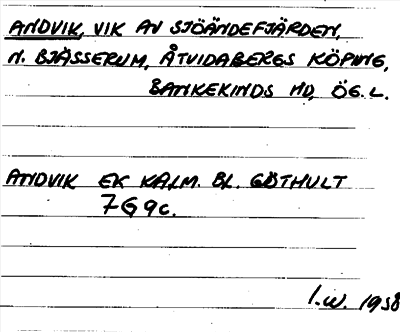 ANDVIK, VIK AV SJÖÄNDEFJÄRDEN,
N. BJÄSSERUM, ÅTVIDABERGS KÖPING,
BANKEKINDS HD, ÖG. L.
ANDVIK EK KALM. BL. GÖTHULT
7G 9c.
I.W. 1958